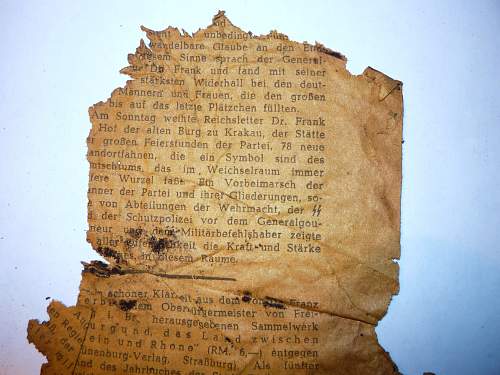 unbedingt
wandelbare Glaube an den End
diesem Sinne sprach der General-
Dr. Frank und fand mit seiner
stärksten Widerhall bei den deut-
Männern und Frauen, die den großen
bis auf das letzte Plätzchen füllten.
Am Sonntag weihte Reichsleiter Dr. Frank
Hof der alten Burg zu Krakau, der Stätte
großen Feierstunden der Partei, 78 neue
andortfahnen, die ein Symbol sind des
utschtums, das im Weichselraum immer
fere Wurzel faßt. Ein Vorbeimarsch der
nner der Partei und ihrer Gliederungen, so-
e von Abteilungen der Wehrmacht, der ᛋᛋ
d der Schutzpolizei vor dem Generalgou-
neur und dem Militärbefehlshaber zeigte
aller
die Kraft und Stärke
in diesem Raume.
schöner Klarheit aus dem von
Franz
dem Oberbürgermeister von Frei-
i. Br. herausgegebenen Sammelwerk
Burgund, das Land zwischen
ein und Rhone" (RM. 6,—) entgegen
Hünenburg-Verlag, Straßburg). Als fünfter
and des Jahrbuches der